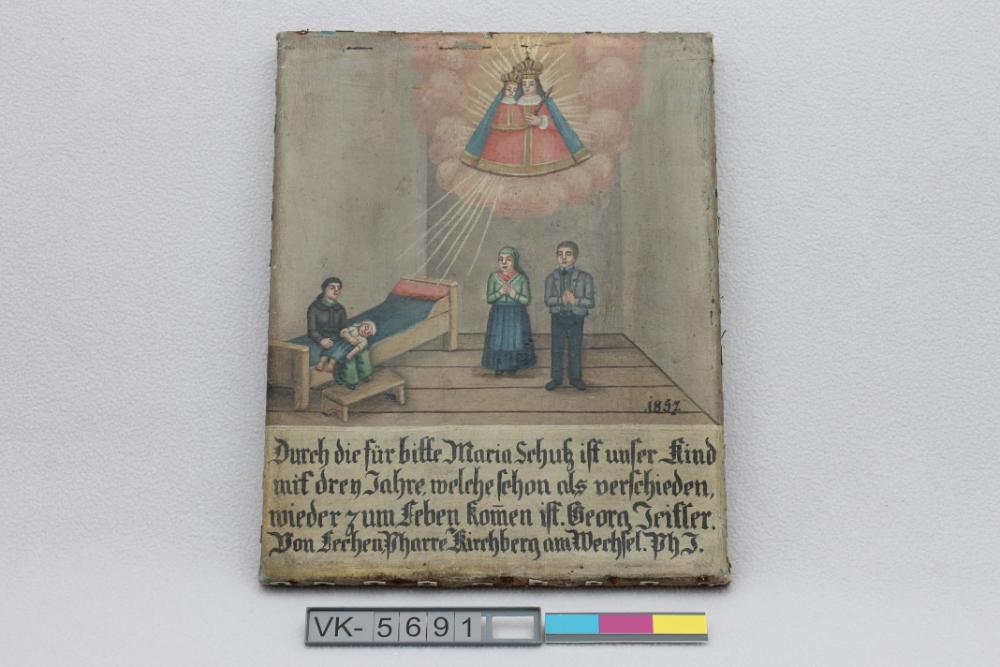 1857.
Durch die für bitte Maria Schutz ist unser Kind
mit dreÿ Jahre, welche schon als verschieden,
wieder zum Leben kom̄en ist. Georg
Von Pharre Kirchberg am Wechsel. Ph J.
VK- 5691